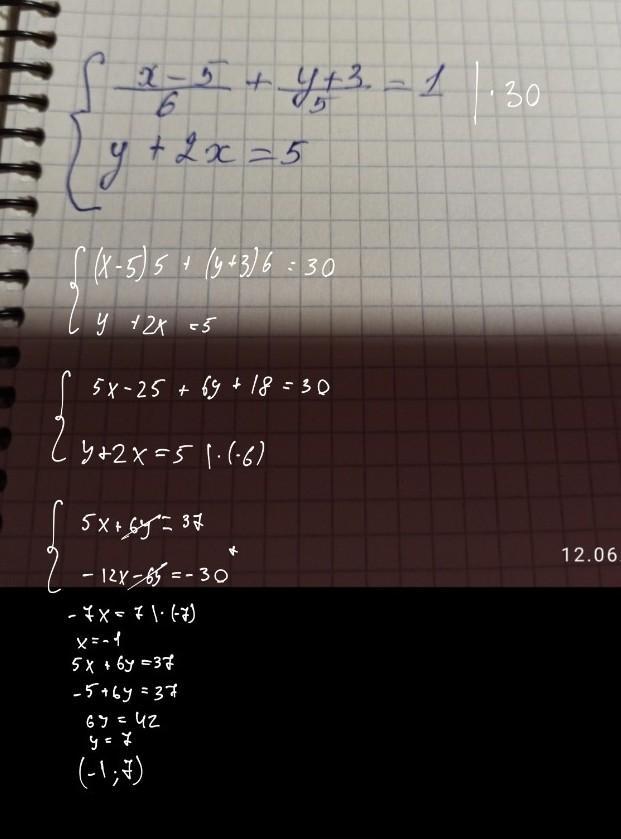 { x-5/6 + y+3/5 = 1 | · 30
y + 2x = 5
{ (x-5)5 + (y+3)6 = 30
y + 2x = 5
{ 5x-25 + 6y + 18 = 30
y+2x = 5 | · (-6)
{ 5x + 6y = 37
+
-12x - 6y = -30
12.06
-7x = 7 | · (-7)
x = -1
5x + 6y = 37
-5 + 6y = 37
6y = 42
y = 7
(-1 ; 7)